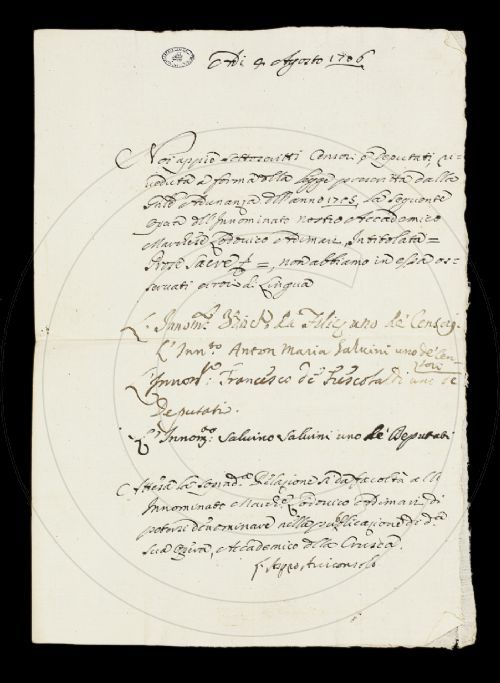 Adì 4 Agosto 1706
Noi appiè sottoscritti Censori e Deputati, ri-
veduta a forma della legge prescritta dalla
ordinanza dell'anno 1705, la seguente
Opera dell'Innominato nostro Accademico
Marchese Lodovico Adimari, Intitolata =
Prose Sacre =, non abbiamo in essa os-
servati errori di Lingua
L'Innom.to uno de' Censori
L'Inn.to Anton Maria Salvini uno de' Cen-
sori
L'Innom.to Francesco de' Frescobaldi uno de
Deputati.
L'Innom.to Salvino Salvini uno de' Deputati
Attesa la Relazione si dà facoltà all'
Innominato March.e Lodovico Adimari di
potersi denominare nella pubblicazione di d.a
Sua Opera, Accademico della Crusca.
Arciconsolo